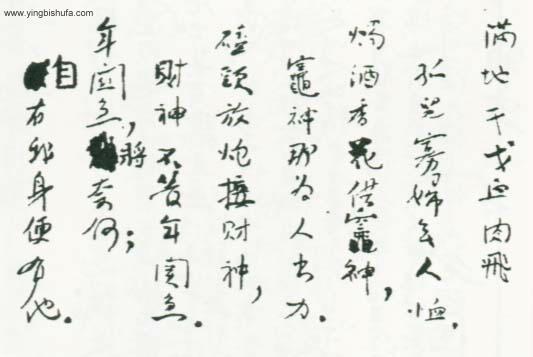 www.yingbishufa.com
满地干戈血肉飛
孤兒寡婦无人恤.
燭酒香花供竈神,
竈神那为人出力.
磕頭放炮接財神,
財神不管年関急.
年関急,將奈何;
自有我身便有他.